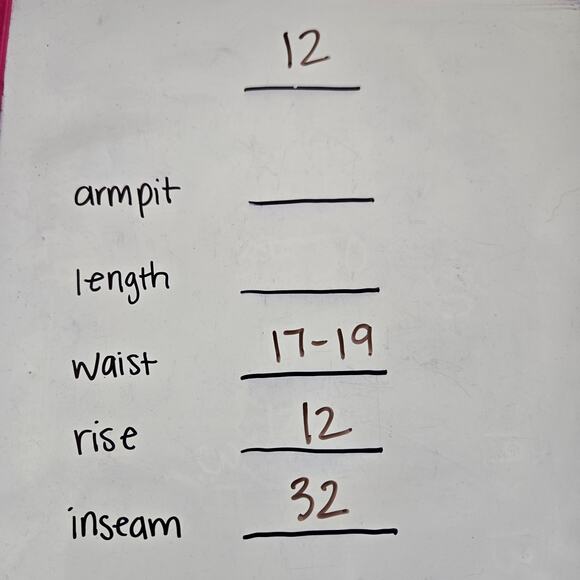 12
armpit
length
waist 17-19
rise 12
inseam 32